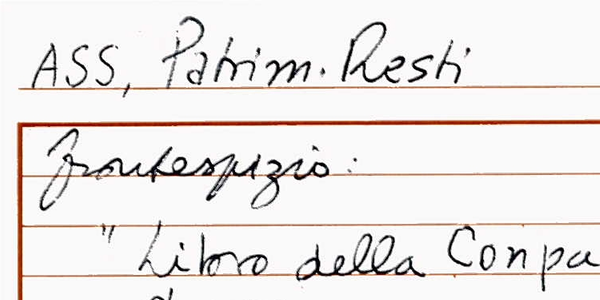 ASS, Patrim. Resti
frontespizio:
" Libro della Conpa